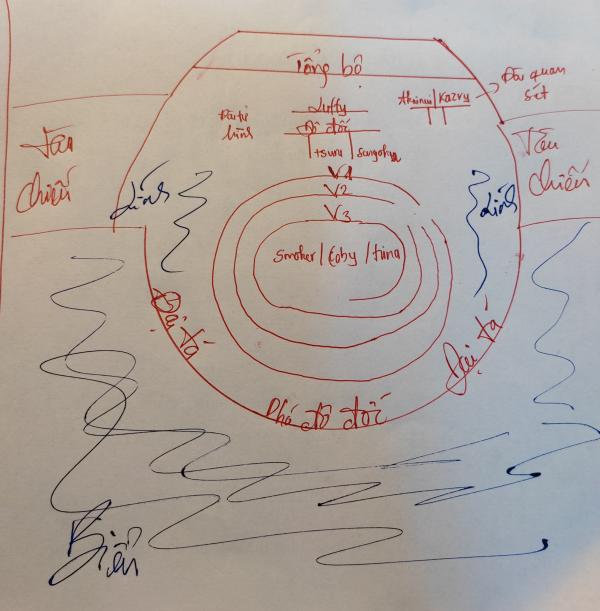 Tổng bộ
Đài quan
sát
Akainu | Kazvy
Luffy
Đô đốc
tsuru
sungohan
Tàu
chiến
Tàu
chiến
Lính
Lính
V1
V2
V3
Smoker / Coby / hina
Đại tá
Đại tá
Phó đô đốc
Biển